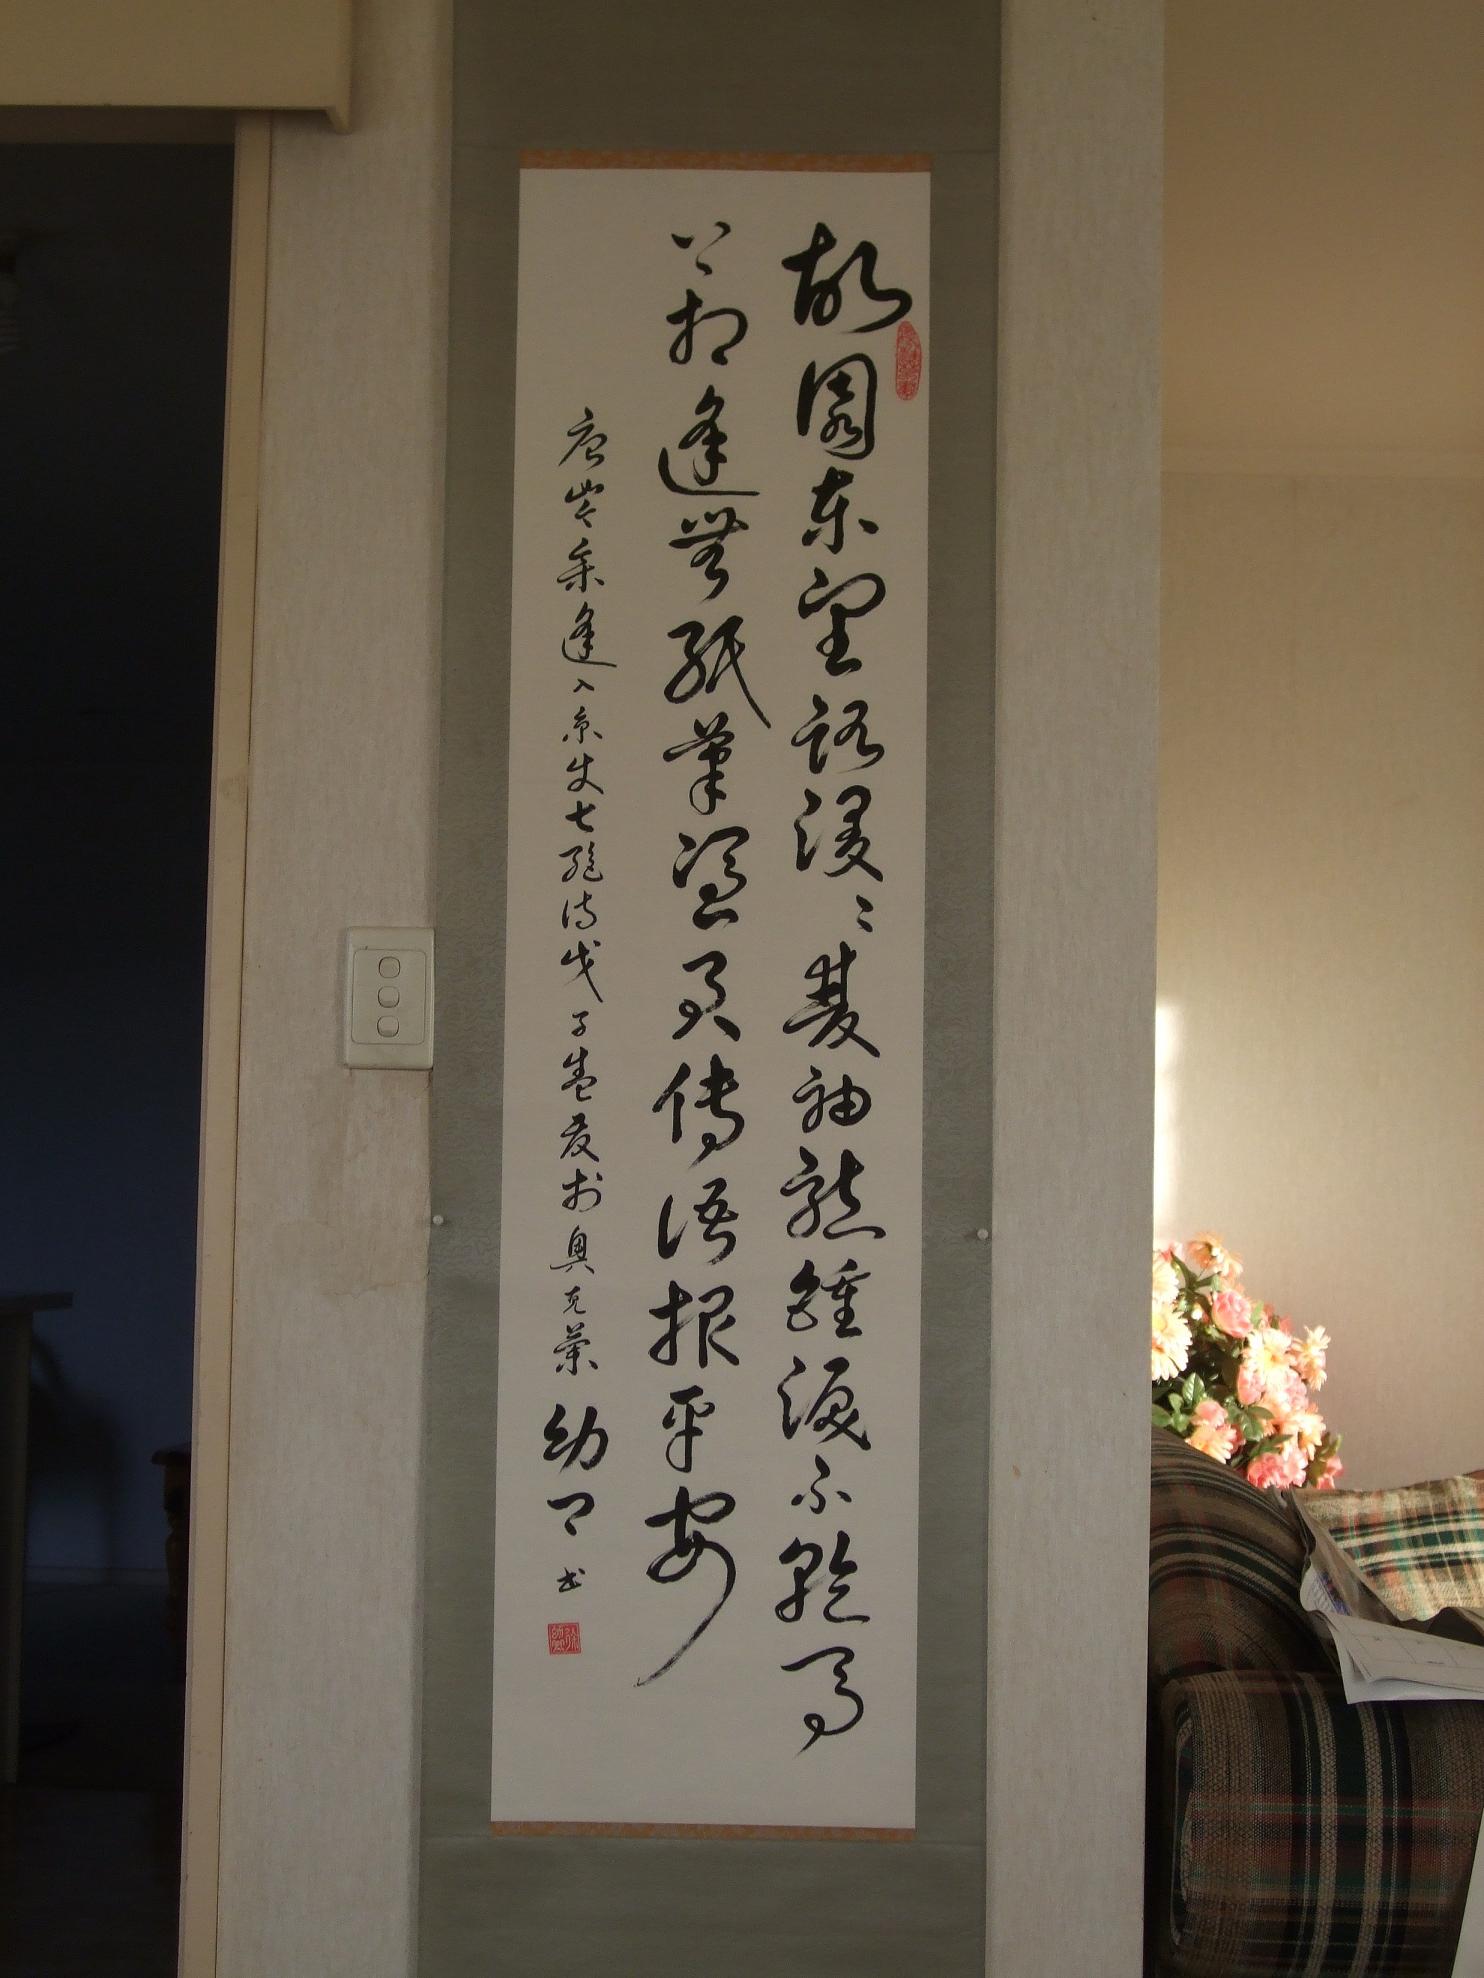 故園東望路漫〻雙袖龍鍾淚不乾馬
上相逢無紙筆憑君傳語報平安
唐岑參逢入京使七絕詩戊子盛夏於奧克蘭 幼卿書